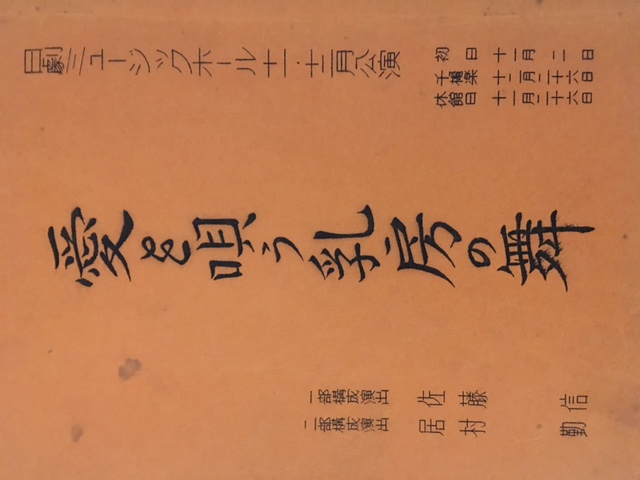 日劇ミュージックホール十一・十二月公演
初日 十一月二日
千穐楽 十二月二十六日
休館日 十一月二十六日
愛を唄う乳房の舞
一部構成演出 佐藤 信
二部構成演出 居村 勤